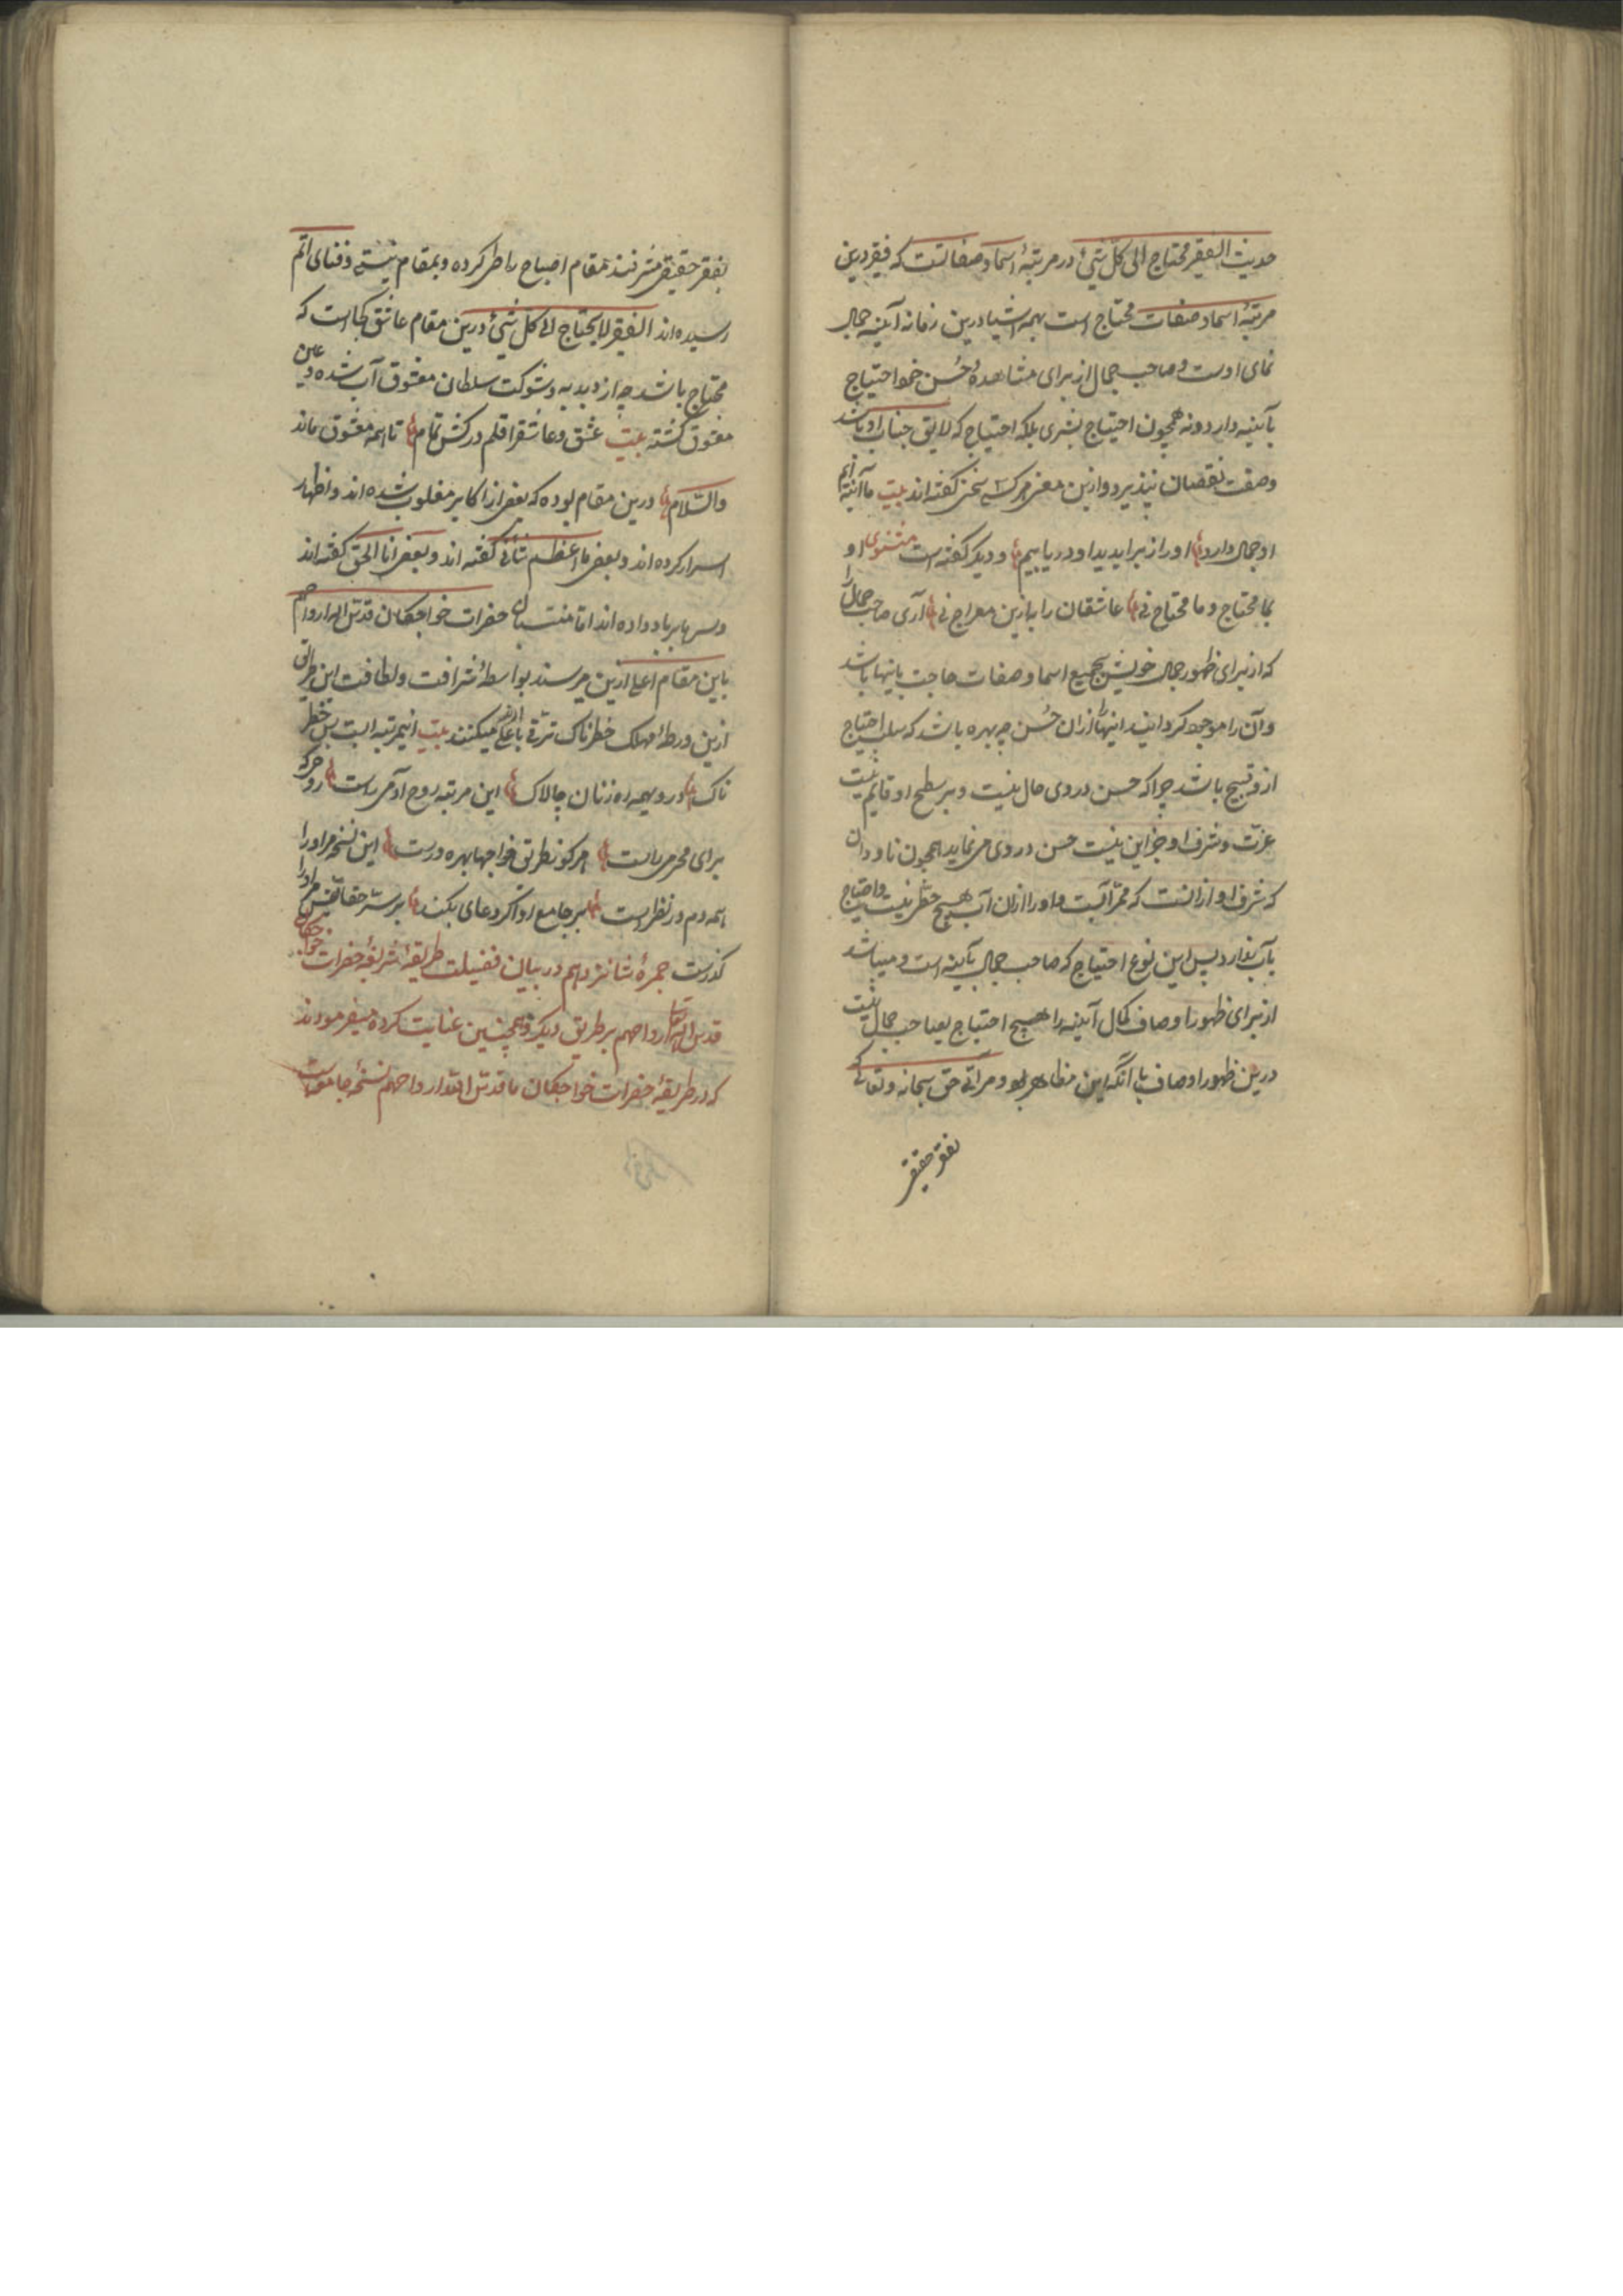 حدیث الفقیر محتاج الی کل شیٔ در مرتبهٔ اسما و صفاتست که فقیر درین
مرتبهٔ اسما و صفات محتاج است بهمه اشیا درین زمانه آینه جمال
نمای اوست و صاحب جمال از برای مشاهدهٔ حُسن خود احتیاج
بآیینه دارد و نه همچون احتیاج بشری بلکه احتیاج که لایق جناب او باشد
وصف نقصان نپذیرد و ازین معنی هرکسی سخن گفته‌اند بیت ما آینه‌ایم
او جمال دارد او را از برای دید او دریابیم و دیگر گفته است مثنوی او
بما محتاج و ما محتاج نی عاشقان را به ازین معراج نی آری صاحب جمال را
که از برای ظهور جمال خویش بجمیع اسما و صفات حاجت باینها باشد
و آن را موجود گردانید اینها را ازان حُسن چه بهره باشد که سلب احتیاج
ازو قبیح باشد چرا که حسن در وی حال نیست و بر سطح او قایم نیست
عزت و شرف او جز این نیست حسن در وی می نماید همچون ناودان
که شرف او از انست که ممر آبست و او را ازان آب هیچ حظی نیست و احتیاج
بآب ندارد پس این نوع احتیاج که صاحب جمال بآیینه است و میباشد
از برای ظهور اوصاف کمال آیینه را هیچ احتیاج بصاحب جمال نیست
درین ظهور اوصاف با آنکه این مظاهر بود و مرآتی حق سبحانه و تعالی که
بفقر حقیقی
بفقر حقیقی مشرفند مقام احتیاج را طی کرده و بمقام نیستی و فنای اتم
رسیده‌اند الفقیر لا یحتاج الی کل شیٔ درین مقام عاشق کجا است که
محتاج باشد چه از دبدبه و شوکت سلطان معشوق آب شده و عین
معشوق گشته بیت عشق و عاشق را قلم درکش تمام تا همه معشوق ماند
والسّلام درین مقام بوده که بعضی از اکابر مغلوب شده‌اند و اظهار
اسرار کرده‌اند و بعضی ما اعظم شأنی گفته‌اند و بعضی انا الحق گفته‌اند
و سرها بر باد داده‌اند اما منتسبان حضرات خواجگان قدس الله ارواحهم
باین مقام اعلی ازین میرسند بواسطهٔ شرافت و لطافت این طریق
ازین ورطهٔ مهلک خطرناک ترقی باعلی میکنند بیت اینمرتبه ایست بس خطر
ناک در وی همه ره زنان چالاک این مرتبه روح آدمی راست رو حرکه
برای محرمی راست هر کو بطریق خواجها بهره ورست این نسخه مر او را
همه دم در نظر است بر جامع او اگر دعای بکند بر سرّ حقایقش مر او را
گذرست جمرهٔ شانزدهم در بیان فضیلت طریقهٔ شریفهٔ حضرات خواجگان
قدس الله تعالی ارواحهم بر طریق دیگر و همچنین عنایت کرده میفرمودند
که در طریقهٔ حضرات خواجگان ما قدس الله ارواحهم نسخهٔ جامعه است